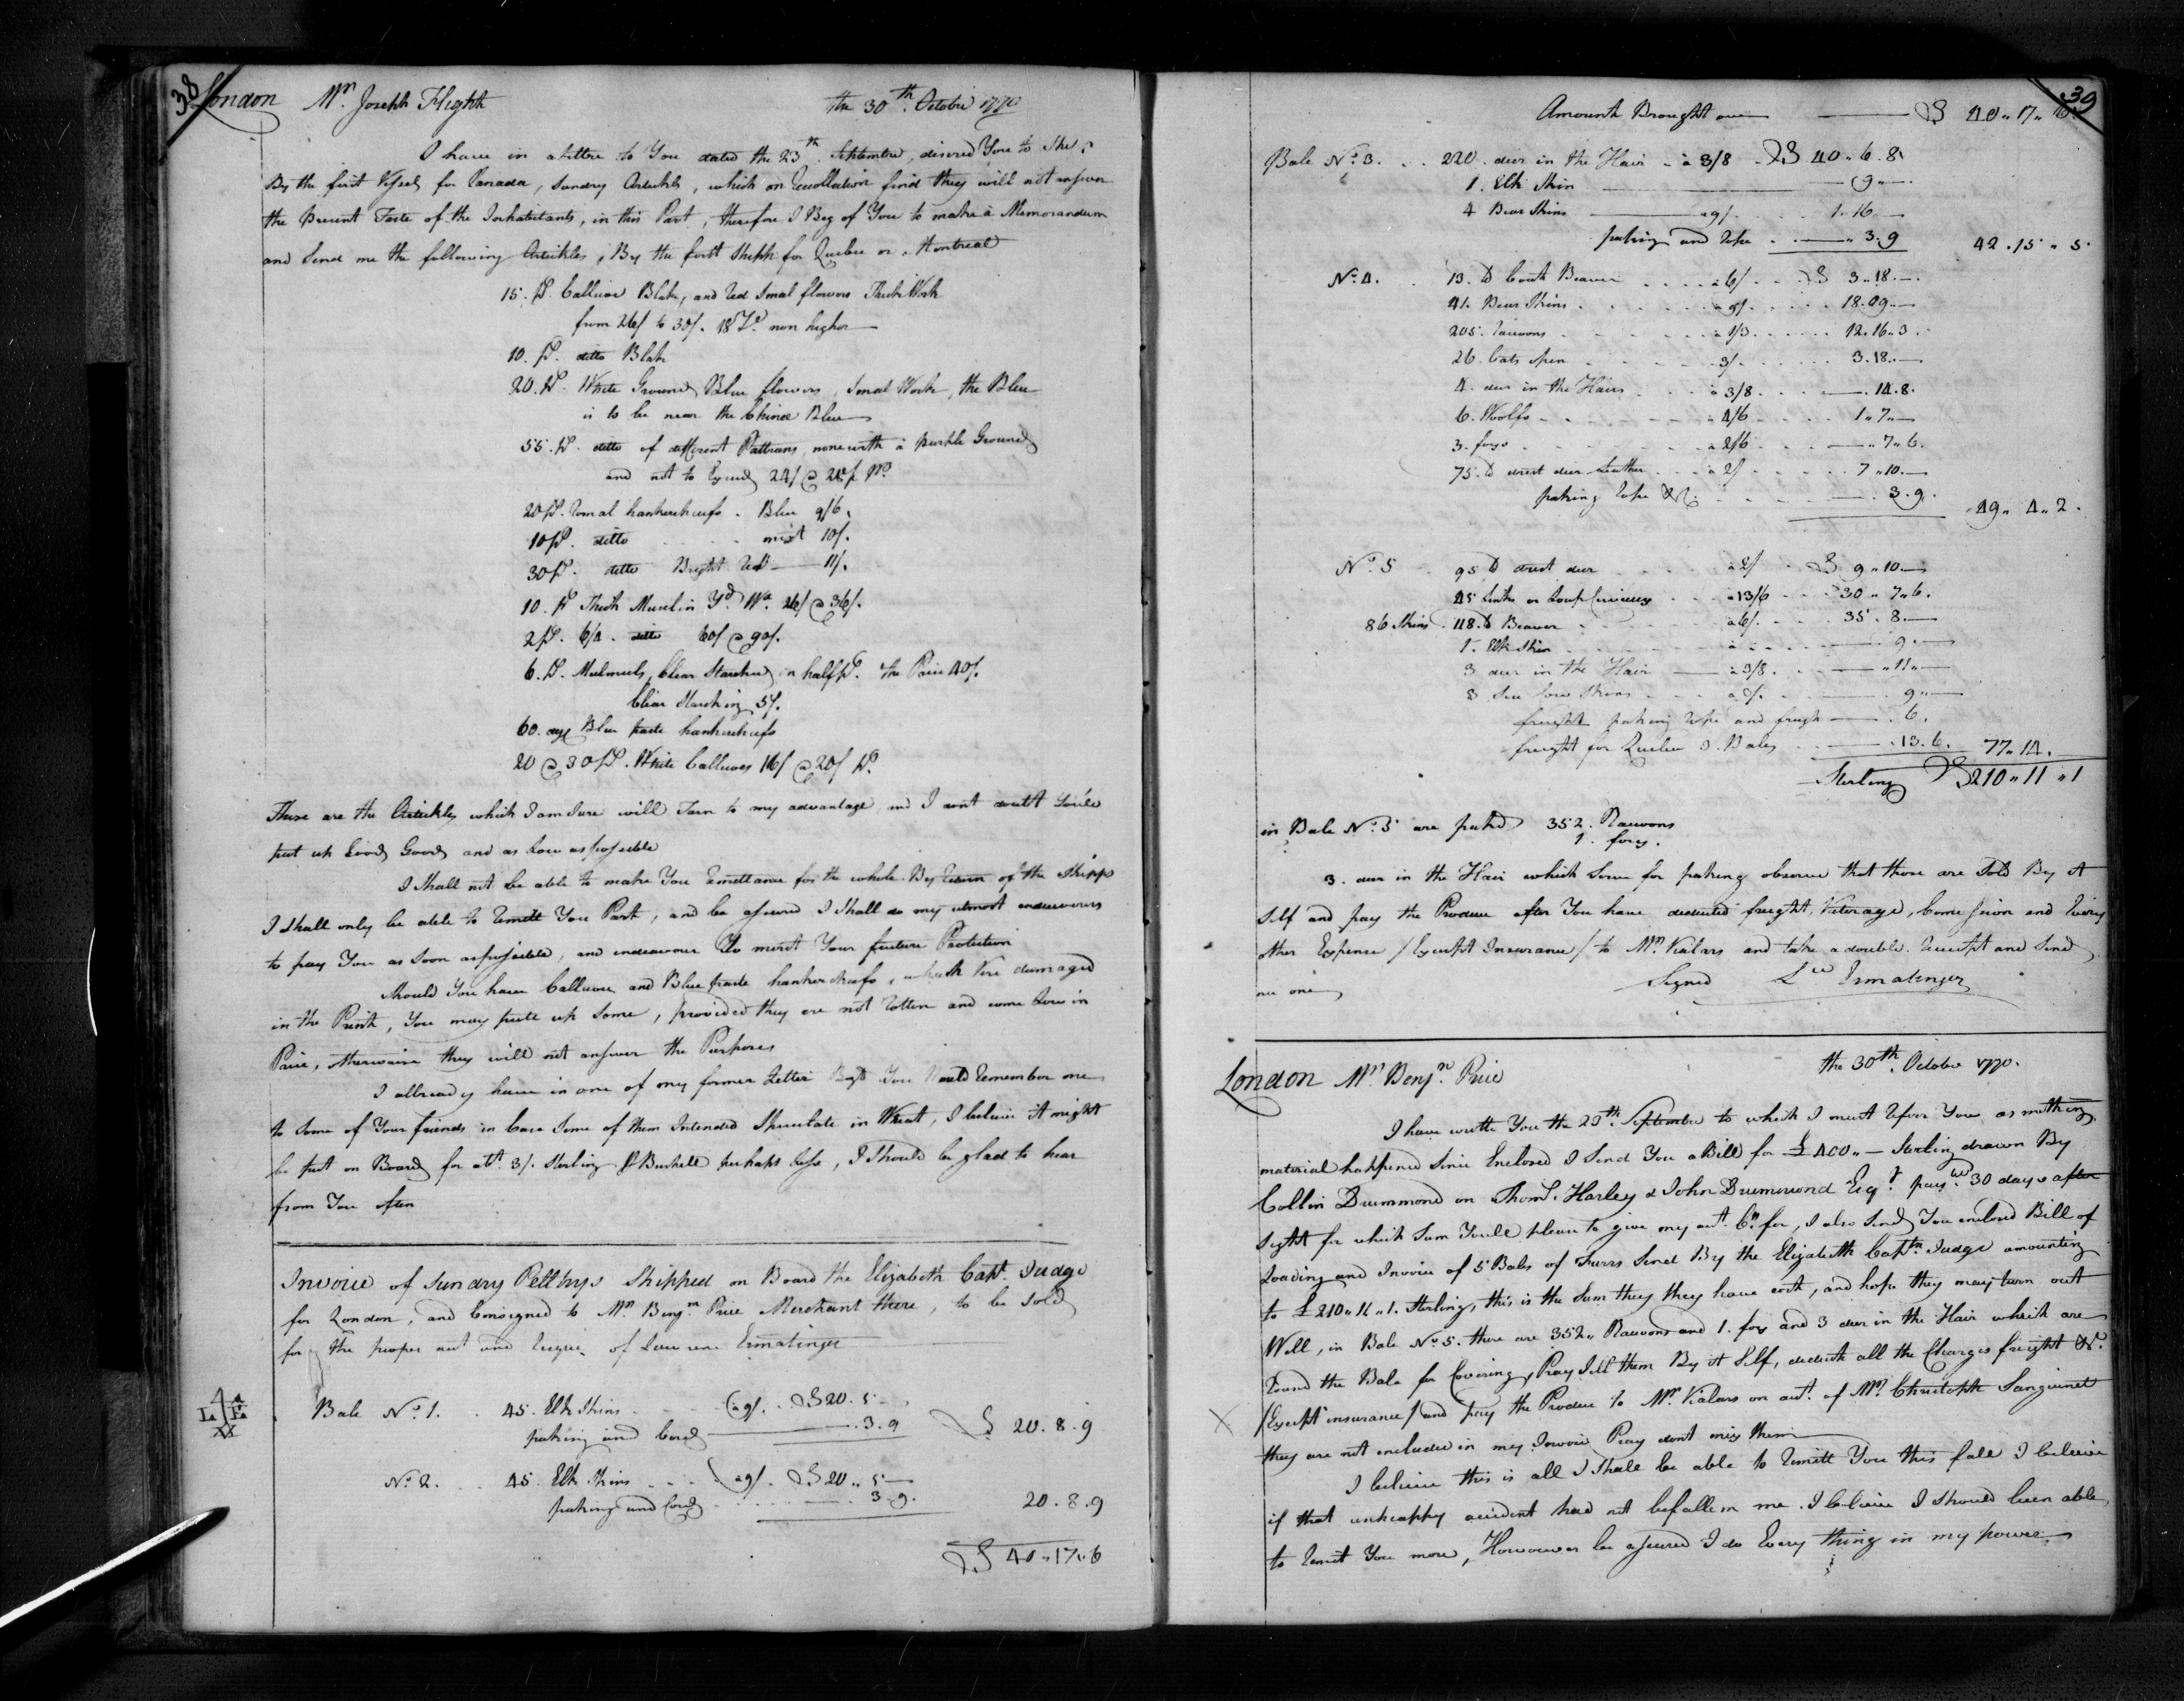 38
London Mr. Joseph Flight the 30th. Octobre 1770
I have in a Lettre to You dated the 23th. Septembre, desired You to Ship
By the first Vessel for Canada, Sundry Articles, which on Recollection find they will not answer
the Present Taste of the Inhabitants, in this Part, therefore I Beg of You to make à Memorandum
and Send me the following Artickles, By the first Shipp for Quebec or Montreal
15. ps. Callicoe Blak, and Red Smal flowers Thick Work
from 26/ to 30/. 18 Yds. non higher
10. ps. ditto Blak
20. ps. White Ground Blue flowers, Smal Work, the Blue
is to be near the Chinee Blue
55. ps. ditto of different Pattrans, none with à purple Ground
and not to Exceed 24/ @ 28/ ps.
20 ps. Romal hankercheifs. Blue 9/6.
10 ps. ditto mixt 10/.
30 ps. ditto Bright Red 11/.
10. ps Thick Muselin Yd. Wd. 26/ @ 36/.
2 ps. 6/4. ditto 60/ @ 90/.
6. ps. Mulmuls, Clear Starched in half ps. the Price 40/.
Clear Starching 5/.
60. dzs Blue paste hankercheifs
20 @ 30 ps. White Callicoes 16/ @ 20/ ps.
These are the Artickles which I am Sure will Turn to my advantage and I dont doubt You'le
put up Good Goods and as Low as possible
I Shall not be able to make You Remittance for the whole By Return of the Shipps
I Shall only be able to Remitt You Part, and be assured I Shall do my utmost endeavours
to pay You as Soon as possible, and endeavour to merit Your further Protection
Should You have Callicoes and Blue paste hankercheifs, which Were dammaged
in the Print, You may putt up Some, provided they are not Rotten and come Low in
Price, otherwaise they will not answer the Purposes
I allready have in one of my former Letter Begd You Would Remember me
to Some of Your friends in Case Some of them Intended Speculate in Wheat, I believe it might
be put on Board for abt. 3/. Sterling p Bushell perhaps less, I Should be glad to hear
from You often
Invoice of Sundry Pelltrys Shipped on Board the Elizabeth Capt. Judge
for London, and Consigned to Mr. Benjn. Price Merchant there, to be Sold
for the proper act and Risque of Lawrence Ermatinger
L E
Bale No. 1. 45. Elk Skins (a 9/. £ 20. 5
paking and Cord 3. 9 £ 20. 8. 9
No. 2. 45. Elk Skins (a 9/. £ 20.. 5
paking and Cord 3. 9. 20. 8. 9
£ 40.. 17.. 6
39
Amount Brought over £ 40.. 17.. 6.
Bale No. 3. 220. deer in the Hair à 3/8 £ 40.. 6. 8
1. Elk Skin 9..
4 Bear Skins a 9/. 1.. 16
paking and Rope 3. 9 42. 15.. 5
No. 4. 13. lb Coat Beaver à 6/ £ 3.. 18.
41. Bear Skins à 9/. 18. 09
205. Racoons à 1/3 12. 16.. 3
26. Cats open 3/. 3. 18..
4. deer in the Hairs à 3/8 14. 8.
6. Woolfs à 4/6 1.. 7..
3. foxs à 2/6 7.. 6.
75. lb drest deer Leather à 2/ 7.. 10.
paking Rope &c. 3. 9. 49.. 4.. 2.
No. 5 95 lb drest deer à 2/ £ 9.. 10.
45 Links or Loup Cerviers à 13/6 30.. 7.. 6.
86 Skins. 118. lb Beaver à 6/. 35. 8.
1. Elk Skin 9.
3 deer in the Hair à 3/8. 11..
8 Skins 9..
freight paking Rope and freigh 6.
freight for Quebec 5. Bales 13. 6. 77.. 14.
Sterling £ 210.. 11.. 1
in Bale No. 5 are paked 352. Racoons
1. foxs.
3. deer in the Hair which Serve for paking observe that those are Sold By it
Self and pay the Produce after You have deducted freight, Commission and Every
other Expence / Except Insurance / to Mr. Vialars and take a double Receipt and Send
me one
Signed Lce Ermatinger
London Mr. Benjn. Price the 30th. Octobre 1770.
I have wrotte You the 23th. Septembre to which I must Refer You as nothing
material happened Since Enclosed I Send You a Bill for £ 400.. Sterling drawn By
Collin Drummond on Thoms. Harley & John Drummond Esqr. payble 30 days after
Sight for which Sum Youle please to give my act. Cr. for, I also Send You enclosed Bill of
Loading and Invoice of 5 Bales of Furrs Send By the Elizabeth Captn. Judge amounting
to £ 210.. 11.. 1. Sterling, this is the Sum they they have cost, and hope they may turn out
Well, in Bale No. 5. there are 352.. Racoons and 1. fox and 3 deer in the Hair which are
Round the Bale for Covering, Pray Sell them By it Self, deduct all the Charges freight &c.
/Except insurance/ and pay the Produce to Mr. Vialars on act. of Mr. Christoph Sanguinet
they are not included in my Invoice Pray dont mix them
I believe this is all I Shall be able to Remitt You this fall I believe
if that unhappy accident had not befallen me. I believe I Should been able
to Remit You more, Howowever be assured I do Every thing in my power